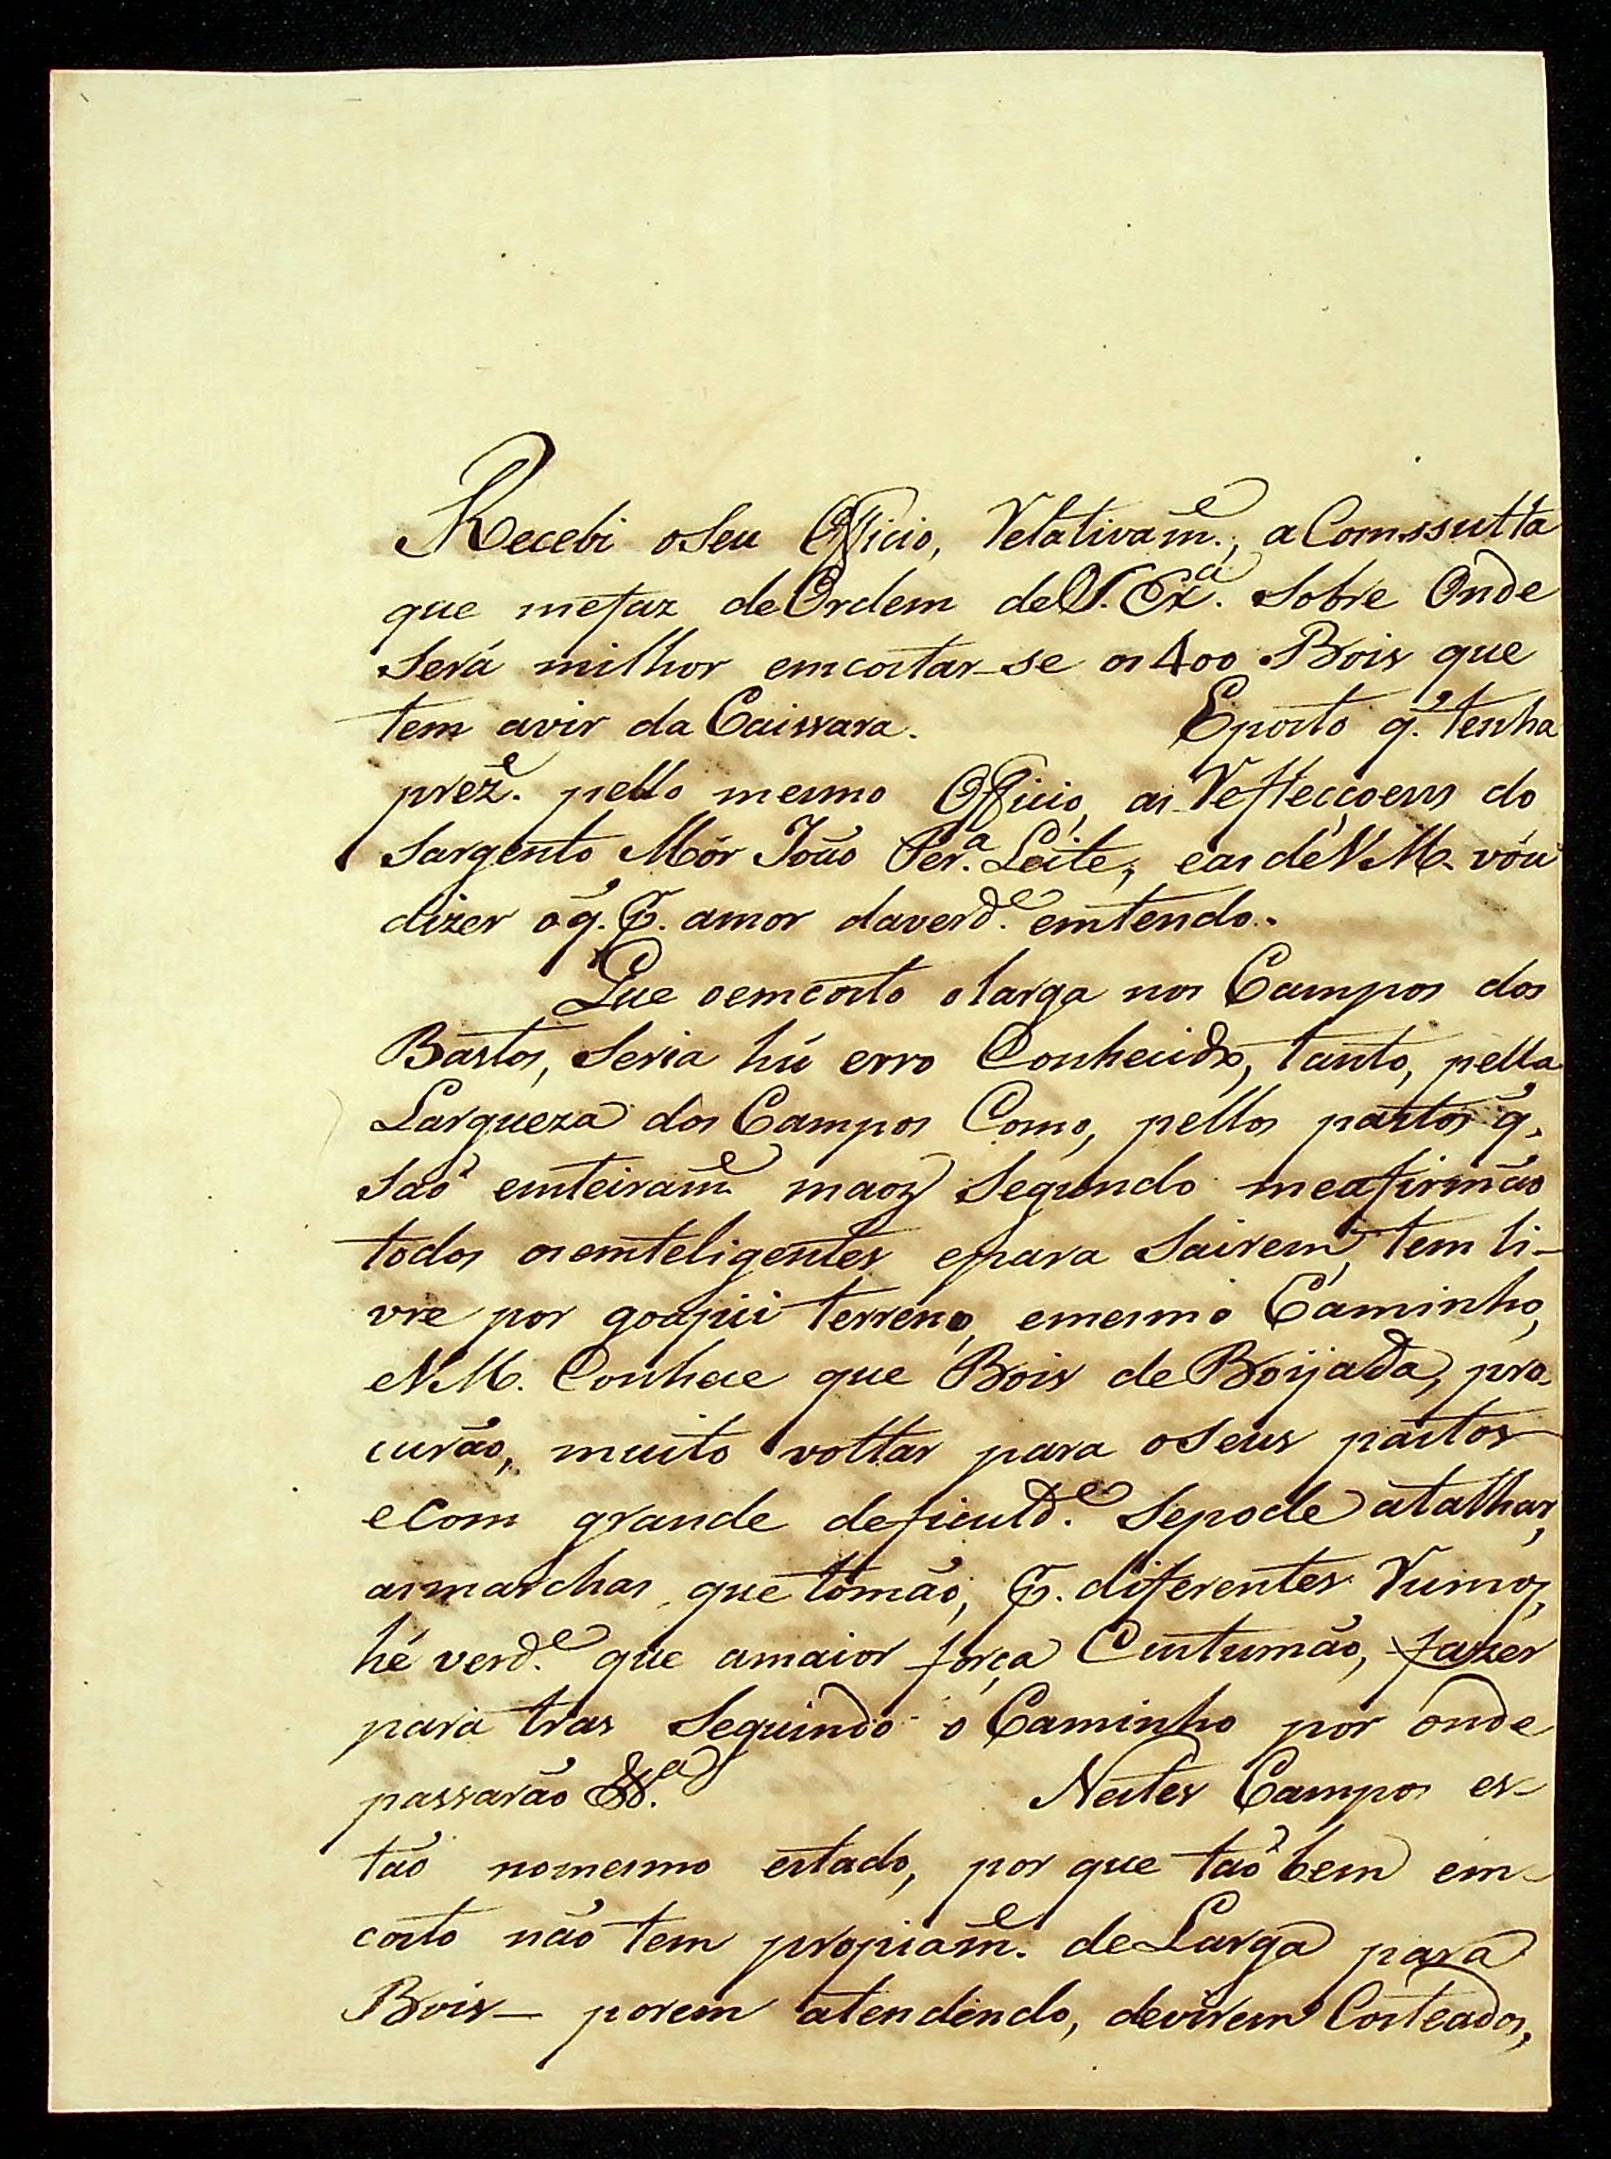 Recebi oSeu Officio, Relativam.e, a Comssulta
que mefaz deOrdem deS. Ex.a Sobre Onde
Será milhor emcostar-se os 400 Bois que
tem avir da Caissara. Eposto q. tenha
prez.e pello mesmo Officio, as Reflecçoens do
Sargento Mór João Per.a Leite, eas deVM. vóu
dizer oq. P. amor daverd.e emtendo.
Que oemcosto olarga nos Campos dos
Bastos, Seria hú erro Conhecido, tanto, pella
Largueza dos Campos Como, pellos pastos q.
Saõ emteiram.e maos Segundo meafirmão
todos osemteligentes epara Sairem, tem li-
vre por goapúi terreno, emesmo Caminho,
eVM. Conhece que Bois de Boijada, pro-
curão, muito voltar para oSeus pastos
eCom grande deficuld.e Sepode atalhar,
asmarchas que tomão, P. diferentes Rumos,
hé verd.e que amaior força Custumão, fazer
para tras Seguindo o Caminho por onde
passarão &.a Nestes Campos es-
tão nomesmo estado, por que taõ bem em-
costo não tem propiam.e deLarga para
Bois— porem atendendo, devirem Costeados,